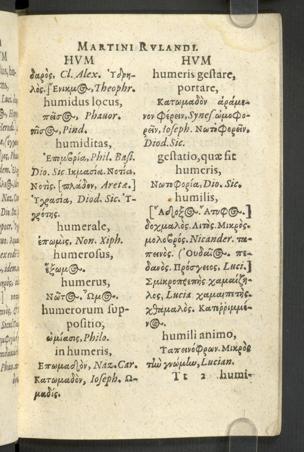 MARTINI RVLANDI.
HVM
δαρός. Cl. Alex. Ὑδρη-
λός. [Ενικμ@. Theophr.
humidus locus,
πῖσ@, Phauor.
Pind.
humiditas,
Phil. Basi.
Dio. Sic. Ικμασία. Νοτία,
Νοτίς. [πλάδον, Areta.]
Ὑγρασία, Diod. Sic. Ὑ-
γρότης.
humerale,
ἐπωμὶς. Non. Xiph.
humerosus,
ἔξωμ@.
humerus,
Νῶτ@. Ὦμ@.
humerorum sup-
positio,
ὠμίασις. Philo.
in humeris,
Επωμαδὸν, Naz. Car.
Κατωμαδὸν, Ioseph. Ω-
μαδίς.
HVM
humeris gestare,
portare,
Κατωμαδὸν ἀράμε-
νον φέρειν, Synes. ὠμοφο-
ρεῖν, Ioseph. Νωτοφορεῖν.
Diod. Sic.
gestatio, quæ fit
humeris,
Νωτοφορία, Dio. Sic.
humilis,
[Ἄδοξ@. Ἄτυφ@.]
δοχμαλὸς. Μικρὸς.
μολοβρὸς. Nicander. τα-
πεινὸς. πε-
δαιὸς. Πρόσγειος, Luci.]
Σμικροπρεπὴς χαμαίζη-
λος, Lucia χαμαιπετὴς.
χθαμαλὸς. Κατερριμμέ-
ν@.
humili animo,
Ταπεινόφρων. Μικρὸς
τὴν γνώμην, Lucian.
Tt 2 humi-